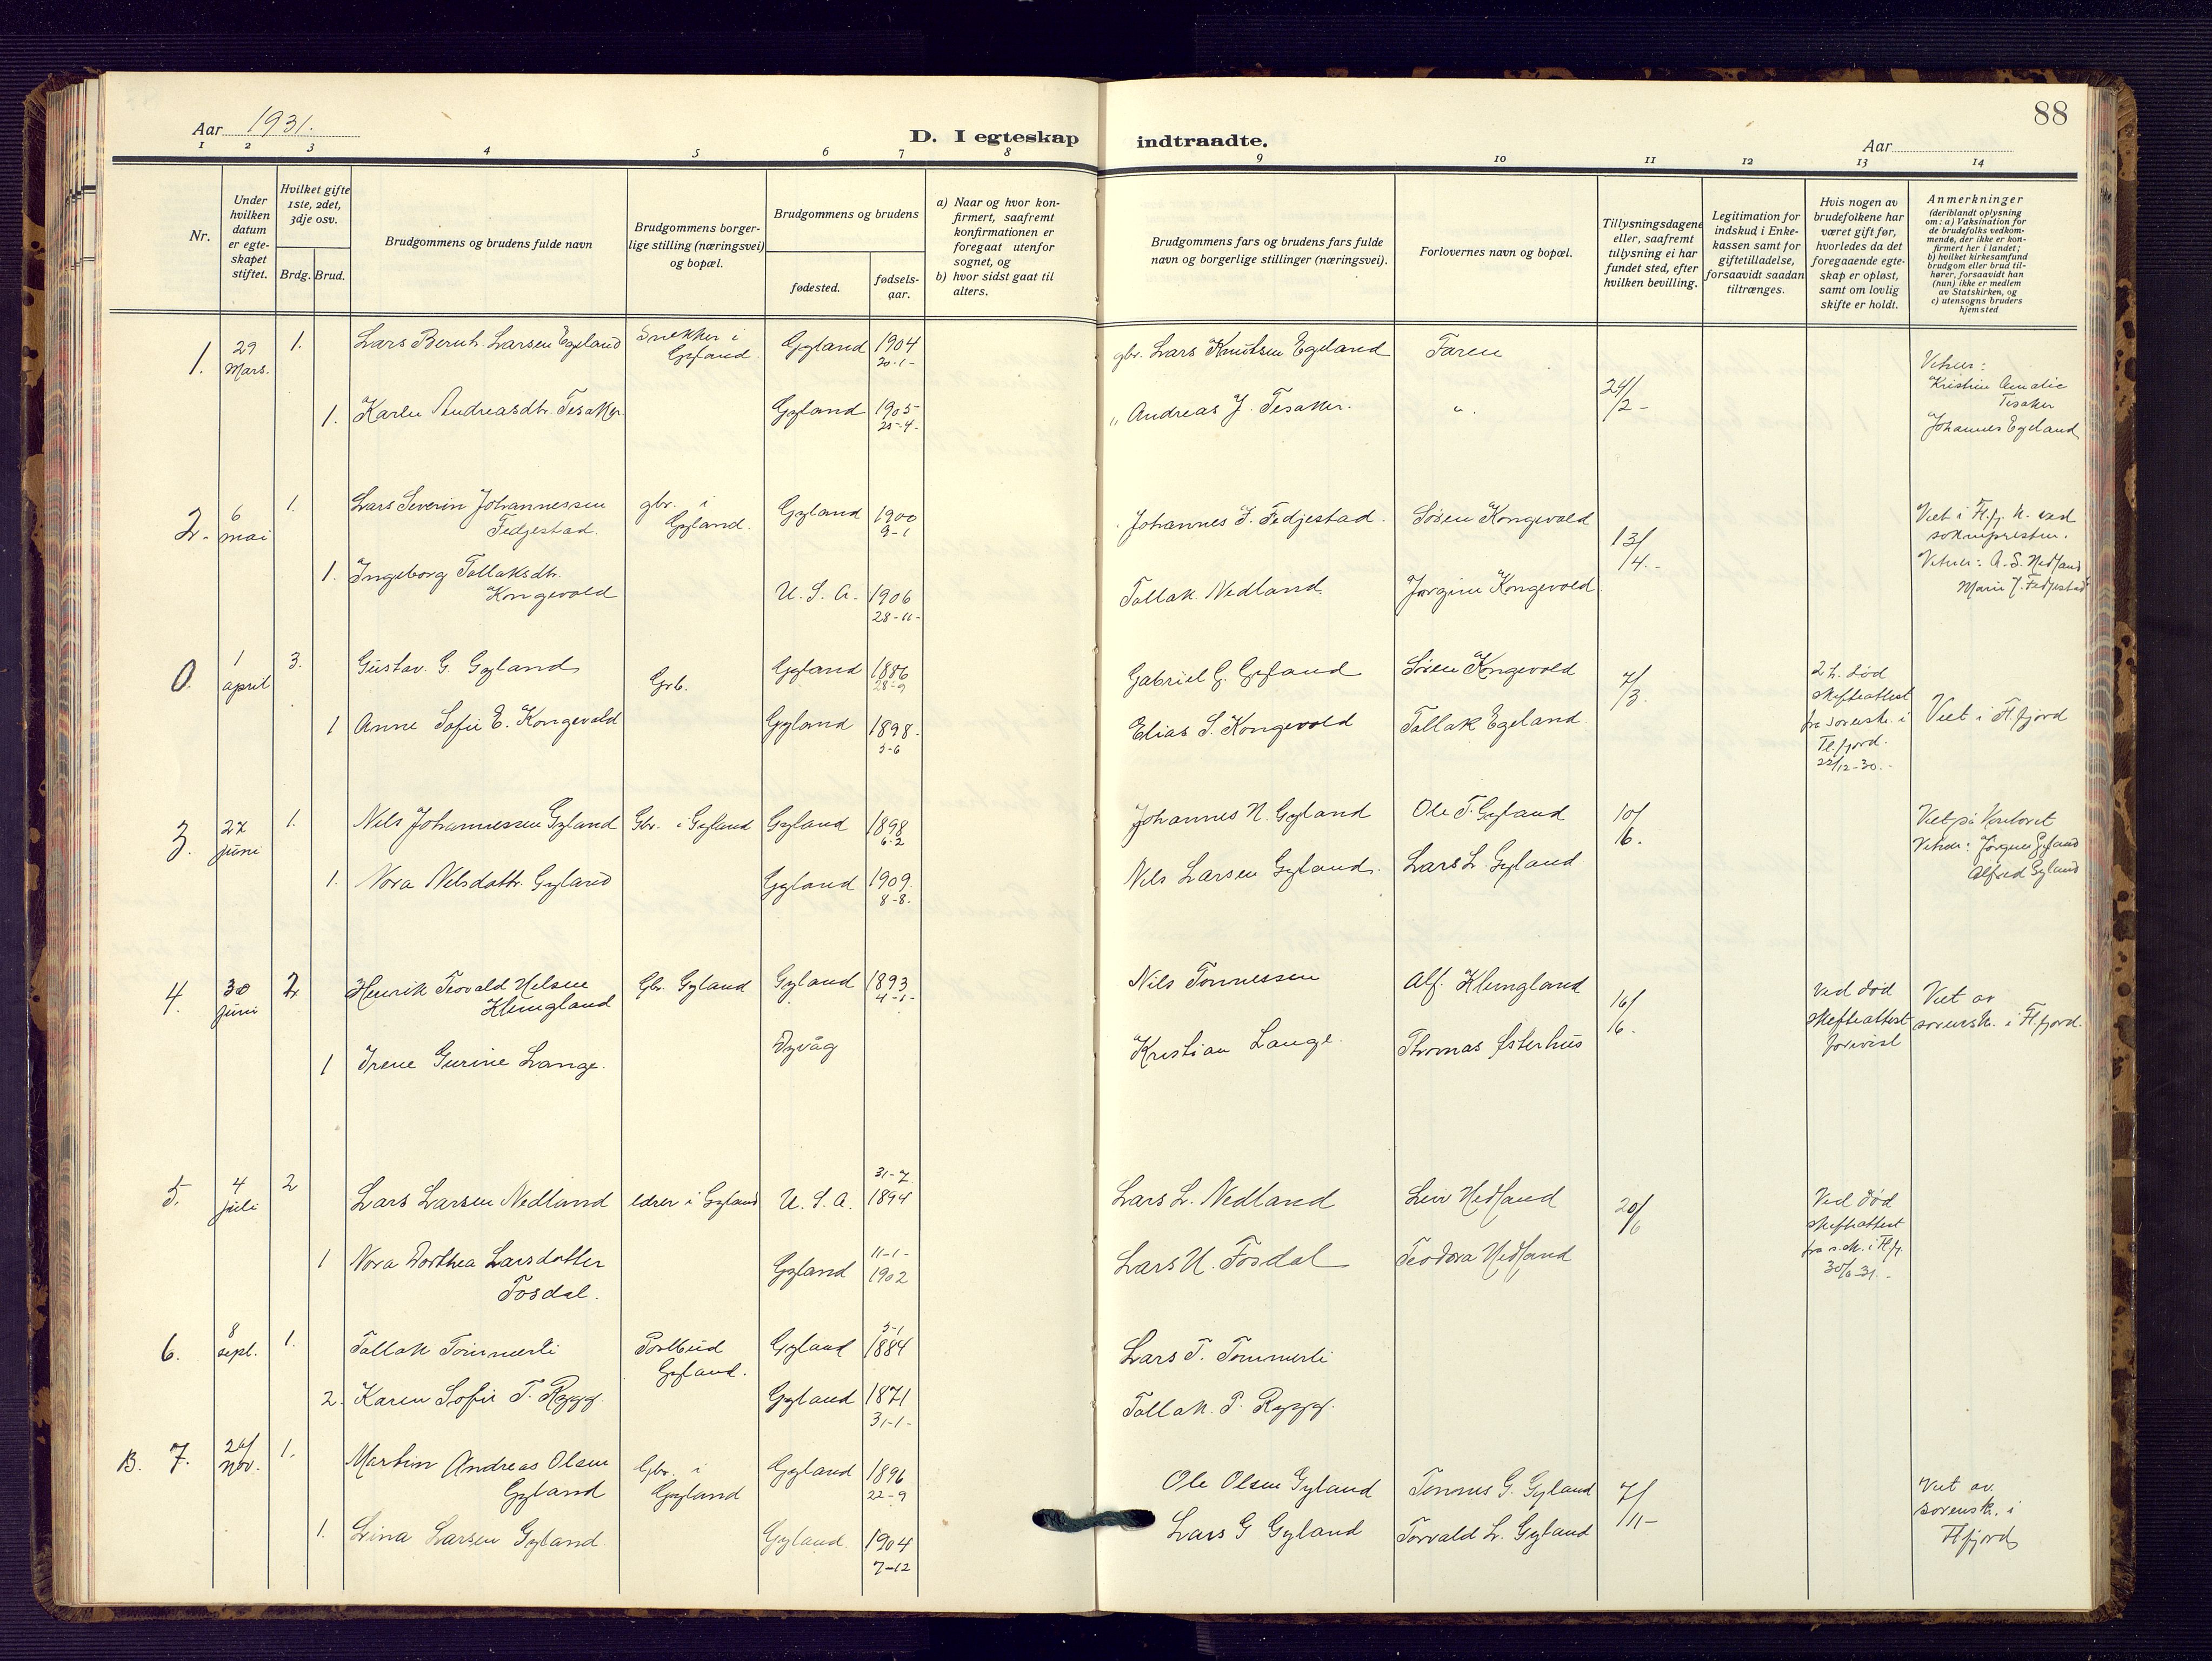 88
Aar 1931.
D. I egteskap indtraadte.
Aar
1 2 3 4 5 6 7 8 9 10 11 12 13 14
Nr.
Under
hvilken
datum
er egte-
skapet
stiftet.
Hvilket gifte
1ste, 2det,
3dje osv.
Brdg. Brud.
Brudgommens og brudens fulde navn
Brudgommens borger-
lige stilling (næringsvei)
og bopæl.
Brudgommens og brudens
fødested.
fødsels-
aar.
a) Naar og hvor kon-
firmert, saafremt
konfirmationen er
foregaat utenfor
sognet, og
b) hvor sidst gaat til
alters.
Brudgommens fars og brudens fars fulde
navn og borgerlige stillinger (næringsvei).
Forlovernes navn og bopæl.
Tillysningsdagene
eller, saafremt
tillysning ei har
fundet sted, efter
hvilken bevilling.
Legitimation for
indskud i Enke-
kassen samt for
giftetilladelse,
forsaavidt saadan
tiltrænges.
Hvis nogen av
brudefolkene har
været gift før,
hvorledes da det
foregaaende egte-
skap er opløst,
samt om lovlig
skifte er holdt.
Anmerkninger
(deriblandt oplysning
om: a) Vaksination for
de brudefolks vedkom-
mende, der ikke er kon-
firmert her i landet;
b) hvilket kirkesamfund
brudgom eller brud til-
hører, forsaavidt han
(hun) ikke er medlem
av Statskirken, og
c) utensogns bruders
hjemsted
1. 29 Mars. 1. Lars Bernh. Larsen Egeland Snekker i Gyland. Gyland 1904 20-1- gbr. Lars Knutsen Egeland Faren 24/2-
1. Karen Andreasdtr. Tesaker Gyland 1905 25-4- " Andreas J. Tesaker. ".
Vitner:
Kristine Amalie
Tesaker
Johannes Egeland
2. 6 mai 1. Lars Severin Johannessen Fedjestad. gbr. i Gyland. Gyland 1900 9-1 Johannes F. Fedjestad. Sören Kongevold 13/4.-
1. Ingeborg Tallaksdtr. Kongevold U.S.A. 1906 28-11- Tallak Nedland. Jørgine Kongevold
Viet i Fl.fj. k. ved
soknepresten.
Vitner: A. S. Nedland
Marie J. Fedjestad
0. 1 april 3. Gustav. G. Gyland Grb. Gyland 1886 28-9 Gabriel G. Gyland Sören Kongevold 7/3.
1 Anne Sofie E. Kongevold Gyland 1898. 5-6 Elias S. Kongevold Tallak Egeland
død
skifteattest
fra sorensk. i
Fl.fjord.
22/12-30.-
Viet i Fl.fjord
3. 27 juni 1. Nils Johannessen Gyland Gbr. i Gyland Gyland 1898 6-2 Johannes N. Gyland Ole T. Gyland 10/6.
1. Nora Nilsdattr. Gyland Gyland 1909. 8-8- Nils Larsen Gyland. Lars L. Gyland
Viet på
Vitner: Jørgen Gyland
Alfred Gyland
4. 30 juni 2 Henrik Teovald Nilsen Klungland Gbr. Gyland Gyland 1893 4-1- Nils Tonnessen Alf. Klungland 16/6.
1 Irene Gurine Lange. Dyvåg Kristian Lange. Thomas Østerhus
Ved død
skifteattest
forevist
Viet av
sorensk. i Fl.fjord.
5. 4 juli 2 Lars Larsen Nedland lærer i Gyland U.S.A. 31-7 1894 Lars L. Nedland Leiv Nedland 20/6
1 Nora Dorthea Larsdatter Fosdal. Gyland 11-1- 1902 Lars N. Fosdal Teodora Nedland
Ved død
skifteattest
fra s.sk. i Fl.fj.
30/6-31.-
6. 8 sept. 1. Tallak Tommerli Postbud Gyland. Gyland 5-1 1884 Lars T. Tommerli
2. Karen Sofie T. Rygg. Gyland 1871 31-1- Tallak P. Rygg.
B. 7. nov. 1. Martin Andreas Olsen Gyland Gbr. i Gyland Gyland 1896 22-9 Ole Olsen Gyland Tonnes G. Gyland 7/11-
1. Lina Larsen Gyland. Gyland 1904 7-12 Lars G Gyland Torvald L. Gyland
Viet av
sorensk. i
Fl.fjord